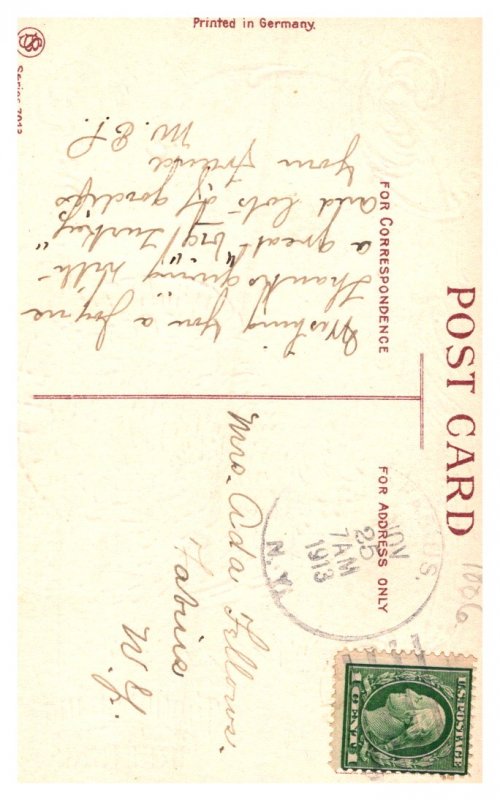 POST CARD
FOR CORRESPONDENCE
FOR ADDRESS ONLY
Wishing you a Joy'ne
Thanksgiving with
a great "big" Turkey"
and lots of goodies
Your Friend
M. E. P.
Mrs. Ada Fellows.
Fabius
N.Y.
NOV
25
7AM
1913
N.Y.
U.S. POSTAGE
1 CENT 1
1006
Printed in Germany.
Series 7013